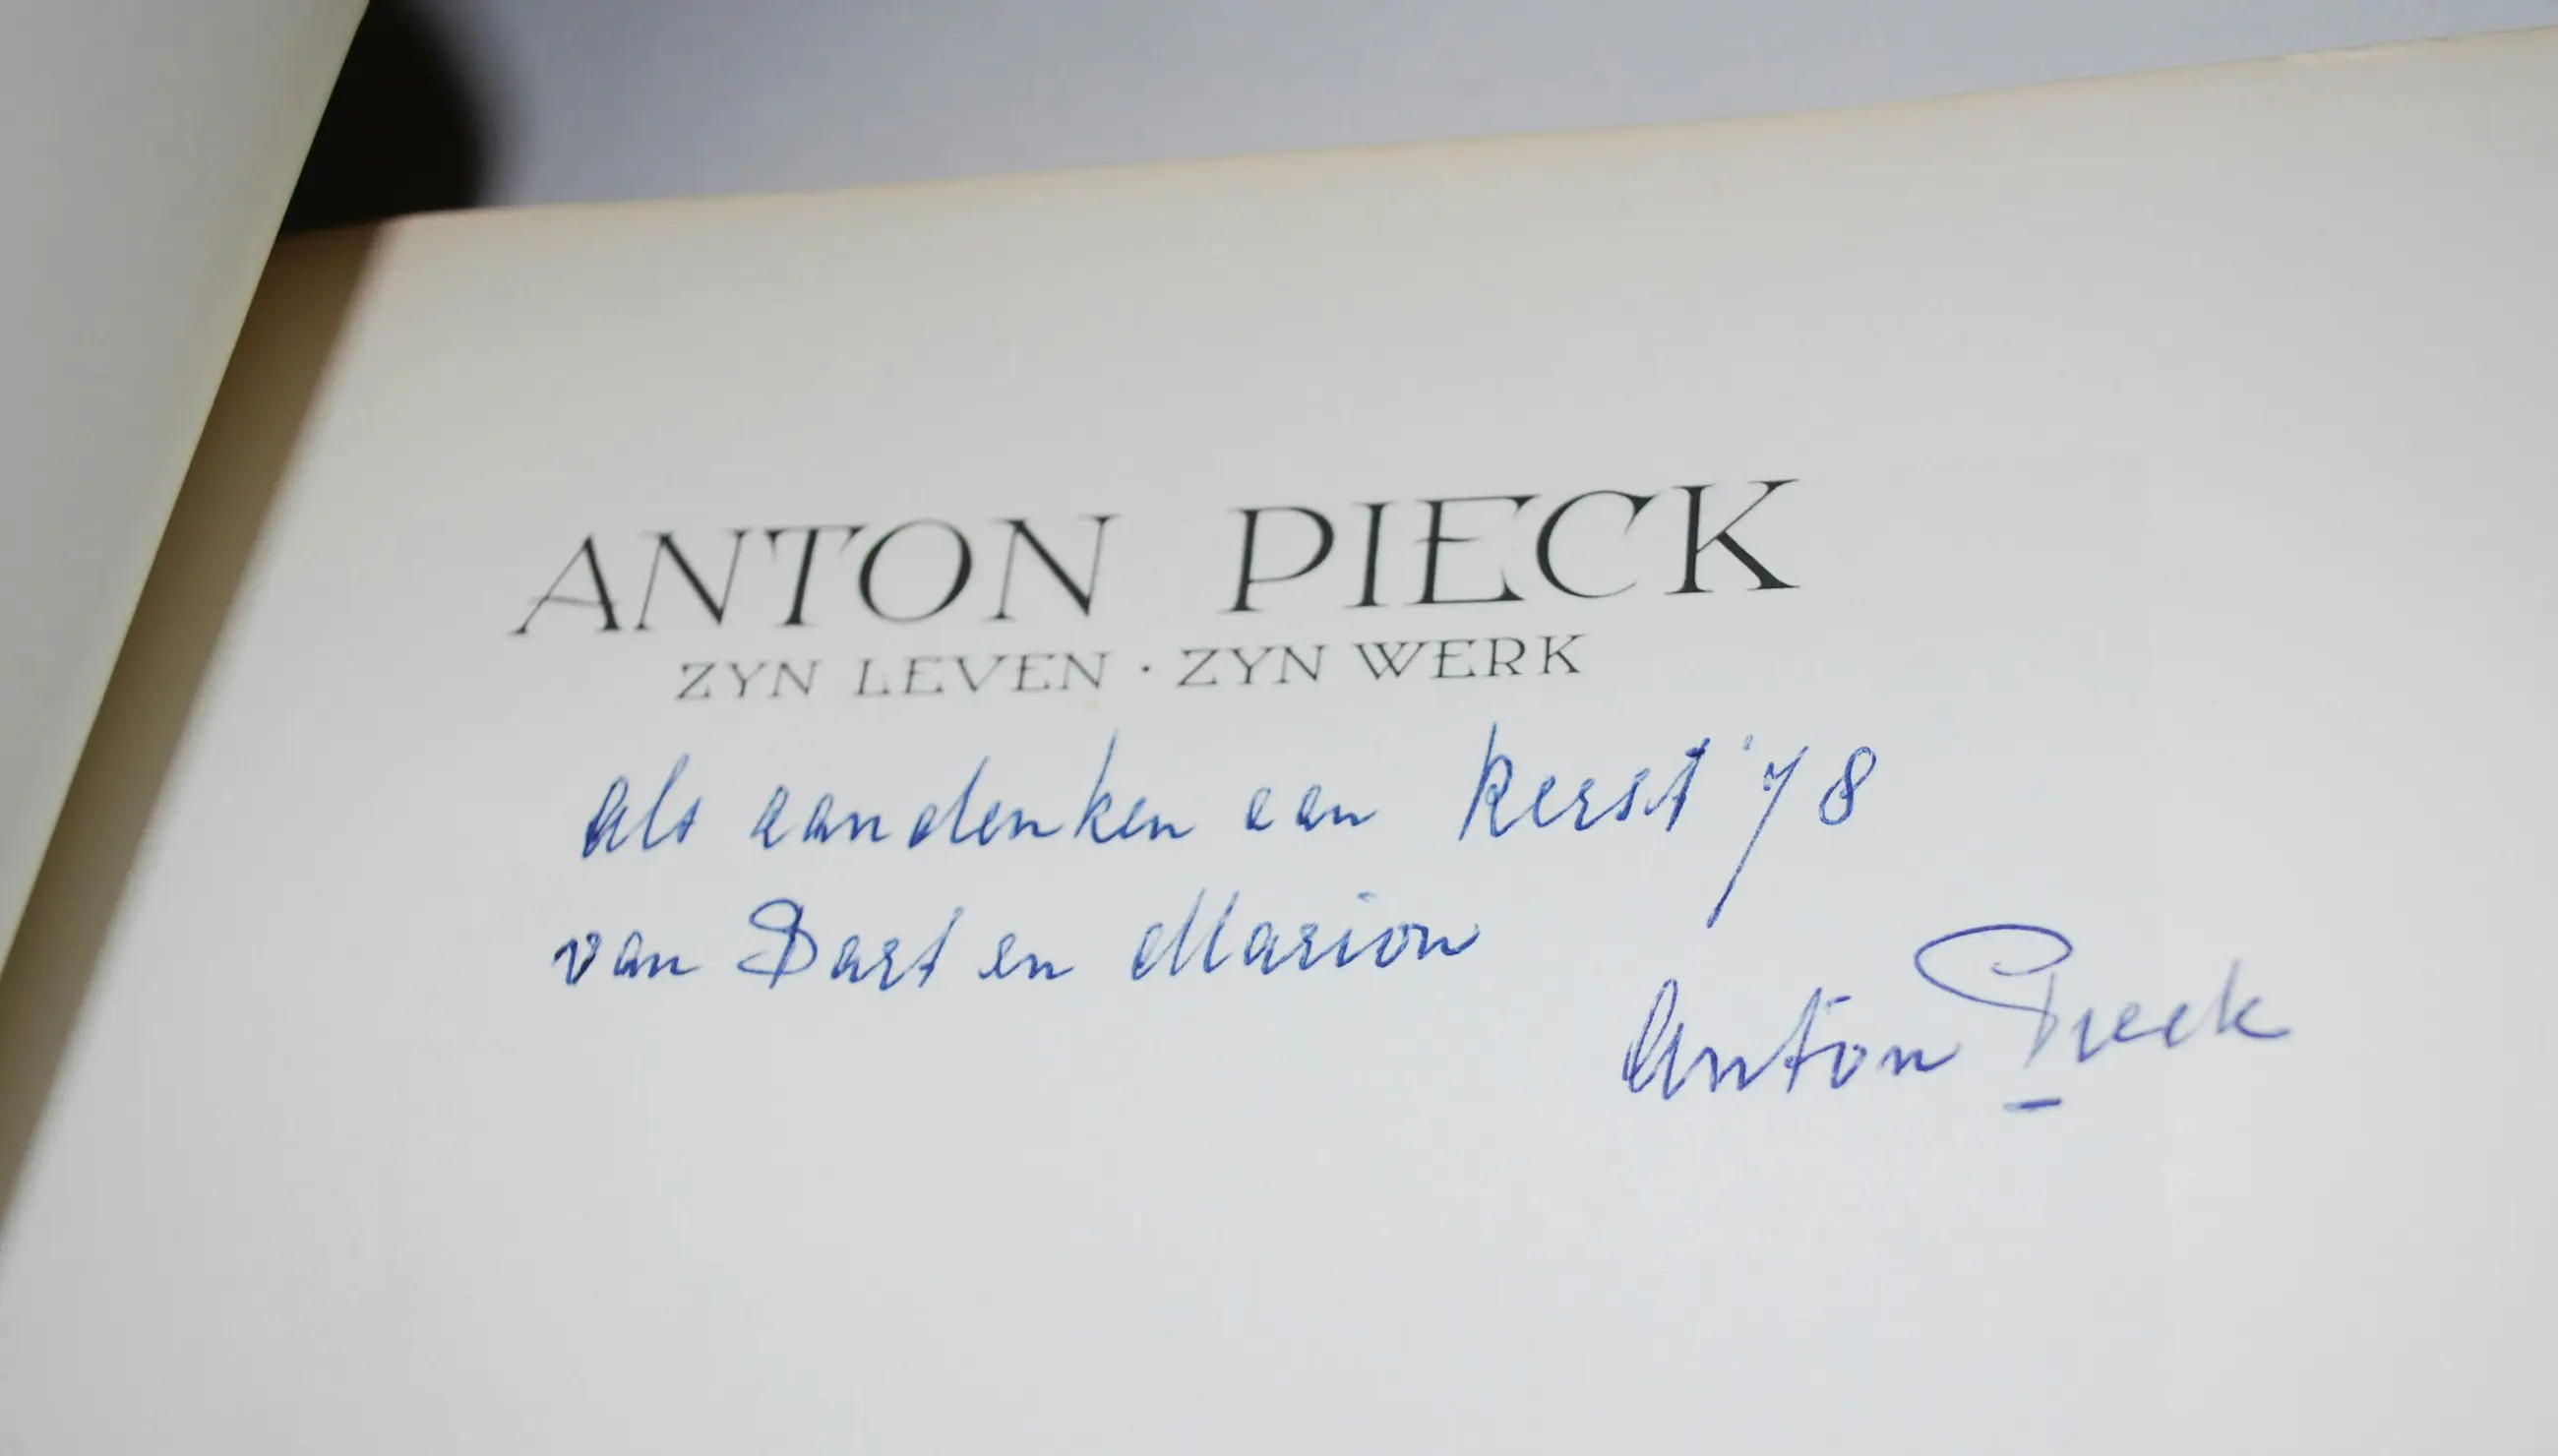 ANTON PIECK
ZYN LEVEN · ZYN WERK
als aandenken aan kerst '78
van Bart en Marion
Anton Pieck